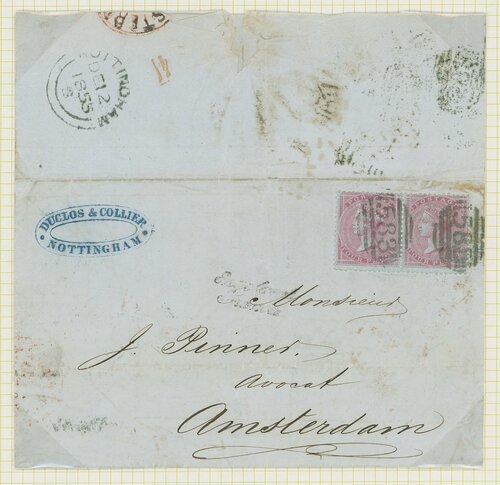 NOTTINGHAM
DE 12
1855
DUCLOS & COLLIER
NOTTINGHAM
POSTAGE
POSTAGE
583
583
Monsieur
J. Pinner.
Avocat
Amsterdam